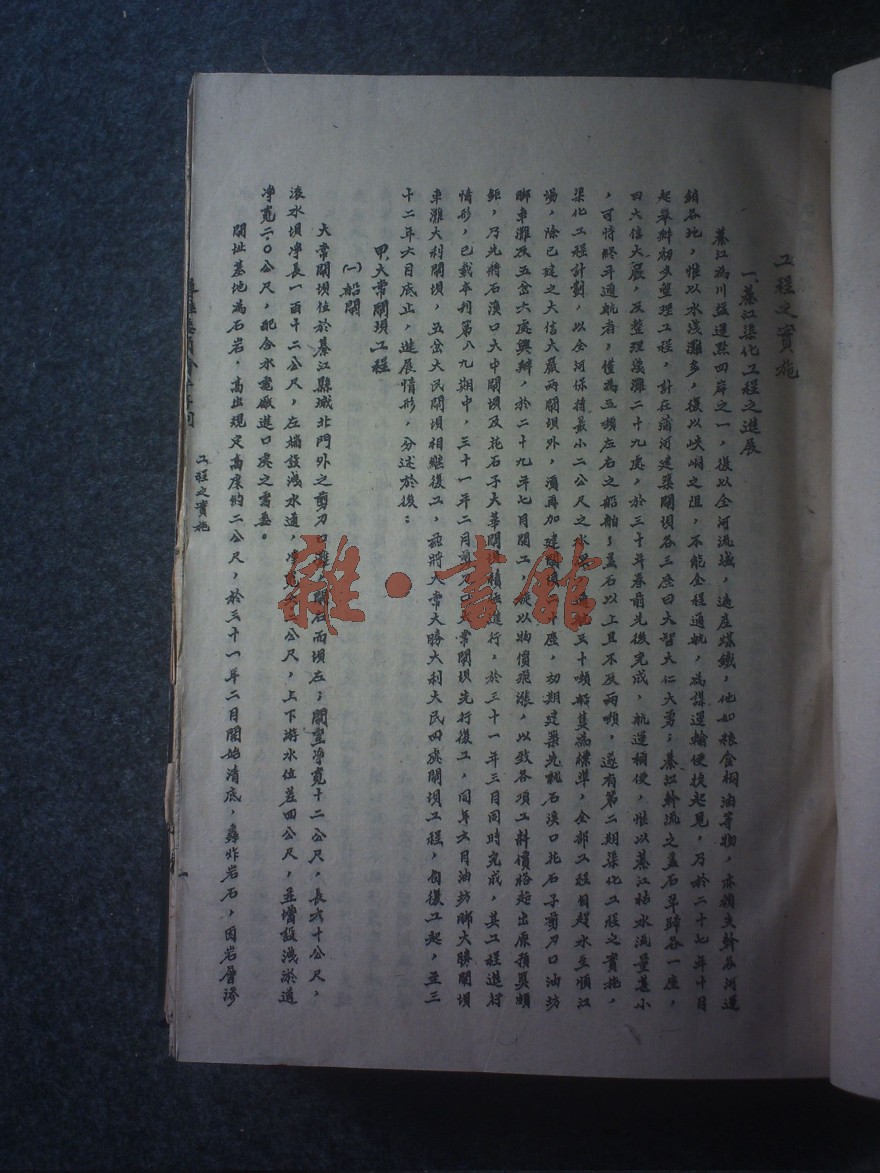 工程之實施
一、綦江渠化工程之進展
綦江為川益運點四岸之一，復以全河流域，適產煤鐵，他如粮食桐油等物，亦賴支幹各河運
銷各地，惟以水淺灘多，復以峽峒之阻，不能全程通航，為謀運輸便捷起見，乃於二十七年十月
起舉辦初步整理工程，計在蒲河建築閘壩各三座曰大智大仁大勇；綦江幹流之蓋石羊蹄各一座，
曰大信大嚴，及整理淺灘二十九處，於三十年春前先後完成，航運稱便，惟以綦江枯水流量甚小
，可恃終年通航者，僅為五噸左右之船舶；蓋石以上且不及兩噸，遂有第二期渠化工程之實施，
渠化工程計劃，以全河保持最小二公尺之水 三十噸船隻為標準，全部工程自趕水至順江
場，除已建之大信大嚴兩閘壩外，須再加建閘壩 座，初期建築先就石溪口花石子剪刀口油坊
腳車灘及五岔六處興辦，於二十九年七月開工， 以物價飛漲，以致各項工料價格超出原預算頗
鉅，乃先將石溪口大中閘壩及花石子大華閘壩積極進行，於三十一年三月同時完成，其工程進行
情形，已載本刊第八九期中，三十一年二月剪刀口大常閘壩先行復工，同年六月油坊腳大勝閘壩
車灘大利閘壩，五岔大民閘壩相繼復工，茲將大常大勝大利大民四處閘壩工程，自復工起，至三
十二年六月底止，進展情形，分述於後：
甲、大常閘壩工程
(一)船閘
大常閘壩位於綦江縣城北門外之剪刀口灘，閘右而壩左；閘室淨寬十二公尺，長六十公尺，
滾水壩淨長一百十二公尺，左端設洩水道，淨寬 公尺，上下游水位差四公尺，並增設洩淤道
淨寬二．〇公尺，配合水電廠進口處之需要。
閘址基地為石岩，高出規定高度約二公尺，於三十一年二月開始清底，轟炸岩石，因岩層滲
工程之實施
一
雜·書館